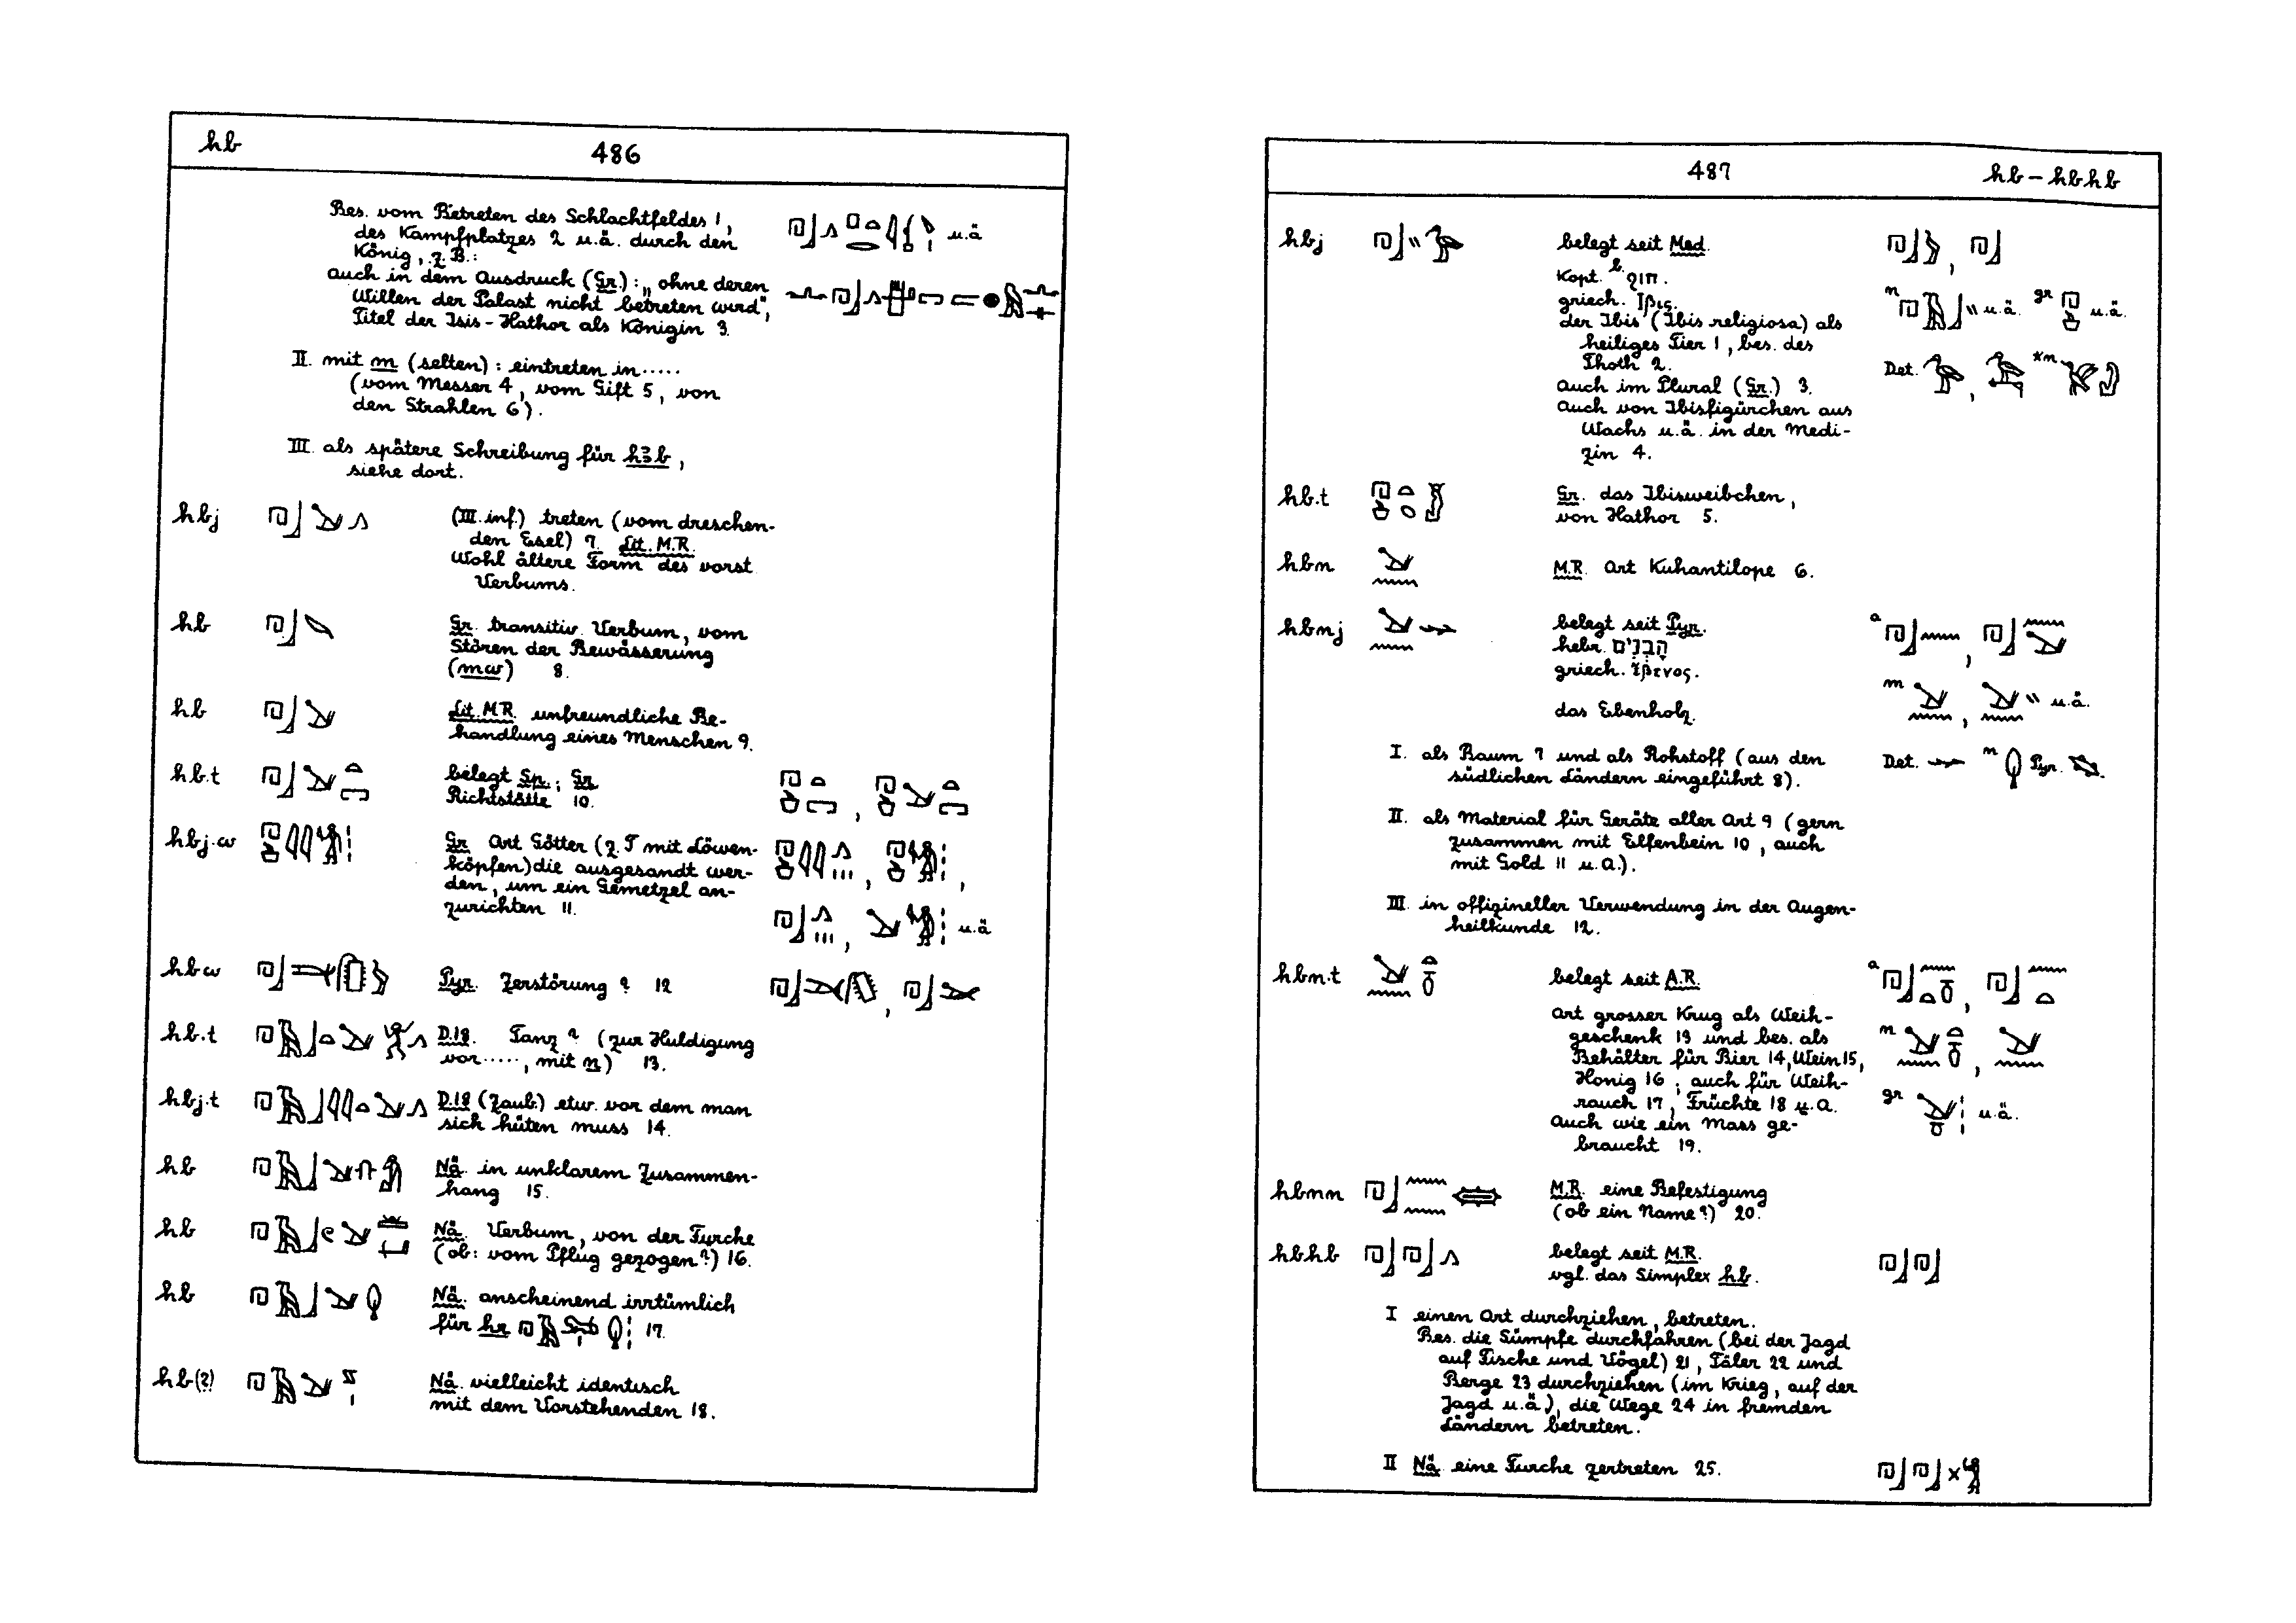 hb 486
Bes. vom Betreten des Schlachtfeldes 1,
des Kampfplatzes 2 u.ä. durch den
König, z.B.:
u.ä
auch in dem Ausdruck (Gr.): „ohne deren
Willen der Palast nicht betreten wird“,
Titel der Isis-Hathor als Königin 3.
II. mit m (selten): eintreten in.....
(vom Messer 4, vom Gift 5, von
den Strahlen 6).
III. als spätere Schreibung für hꜣb,
siehe dort.
hbj (III. inf.) treten (vom dreschen-
den Esel) 7. Lit. M.R.
Wohl ältere Form des vorst.
Verbums.
hb Gr. transitiv. Verbum, vom
Stören der Bewässerung
(mw) 8.
hb Lit. M.R. unfreundliche Be-
handlung eines Menschen 9.
hb.t belegt Sp.; Gr.
Richtstätte 10.
hbj.w Gr. Art Götter (z.T mit Löwen-
köpfen) die ausgesandt wer-
den, um ein Gemetzel an-
zurichten 11.
u.ä
hbw Pyr. Zerstörung? 12
hb.t D.18. Tanz? (zur Huldigung
vor....., mit n) 13.
hbj.t D.18 (Zaub.) etw. vor dem man
sich hüten muss 14.
hb Nä. in unklarem Zusammen-
hang 15.
hb Nä. Verbum, von der Furche
(ob: vom Pflug gezogen?) 16.
hb Nä. anscheinend irrtümlich
für hr 17.
hb(?) Nä. vielleicht identisch
mit dem Vorstehenden 18.
487 hb-hbhb
hbj belegt seit Med.
Kopt. b. ϩιπ.
griech. ἶβις.
der Ibis (Ibis religiosa) als
heiliges Tier 1, bes. des
Thoth 2.
auch im Plural (Gr.) 3.
auch von Ibisfigürchen aus
Wachs u.ä. in der Medi-
zin 4.
n u.ä. gr u.ä.
Det.
hb.t Gr. das Ibisweibchen,
von Hathor 5.
hbn M.R. Art Kuhantilope 6.
hbnj belegt seit Pyr.
hebr. הָבְנִים
griech. ἔβενος.
das Ebenholz.
a
m u.ä.
I. als Baum 7 und als Rohstoff (aus den
südlichen Ländern eingeführt 8).
Det. n Pyr.
II. als Material für Geräte aller Art 9 (gern
zusammen mit Elfenbein 10, auch
mit Gold 11 u.a.).
III. in offizineller Verwendung in der Augen-
heilkunde 12.
hbn.t belegt seit A.R.
Art grosser Krug als Weih-
geschenk 13 und bes. als
Behälter für Bier 14, Wein 15,
Honig 16; auch für Weih-
rauch 17, Früchte 18 u.a.
Auch wie ein Mass ge-
braucht 19.
a
n
gr u.ä.
hbnn M.R. eine Befestigung
(ob ein Name?) 20.
hbhb belegt seit M.R.
vgl. das Simplex hb.
I einen Ort durchziehen, betreten.
Bes. die Sümpfe durchfahren (bei der Jagd
auf Fische und Vögel) 21, Täler 22 und
Berge 23 durchziehen (im Krieg, auf der
Jagd u.ä), die Wege 24 in fremden
Ländern betreten.
II Nä. eine Furche zertreten 25.